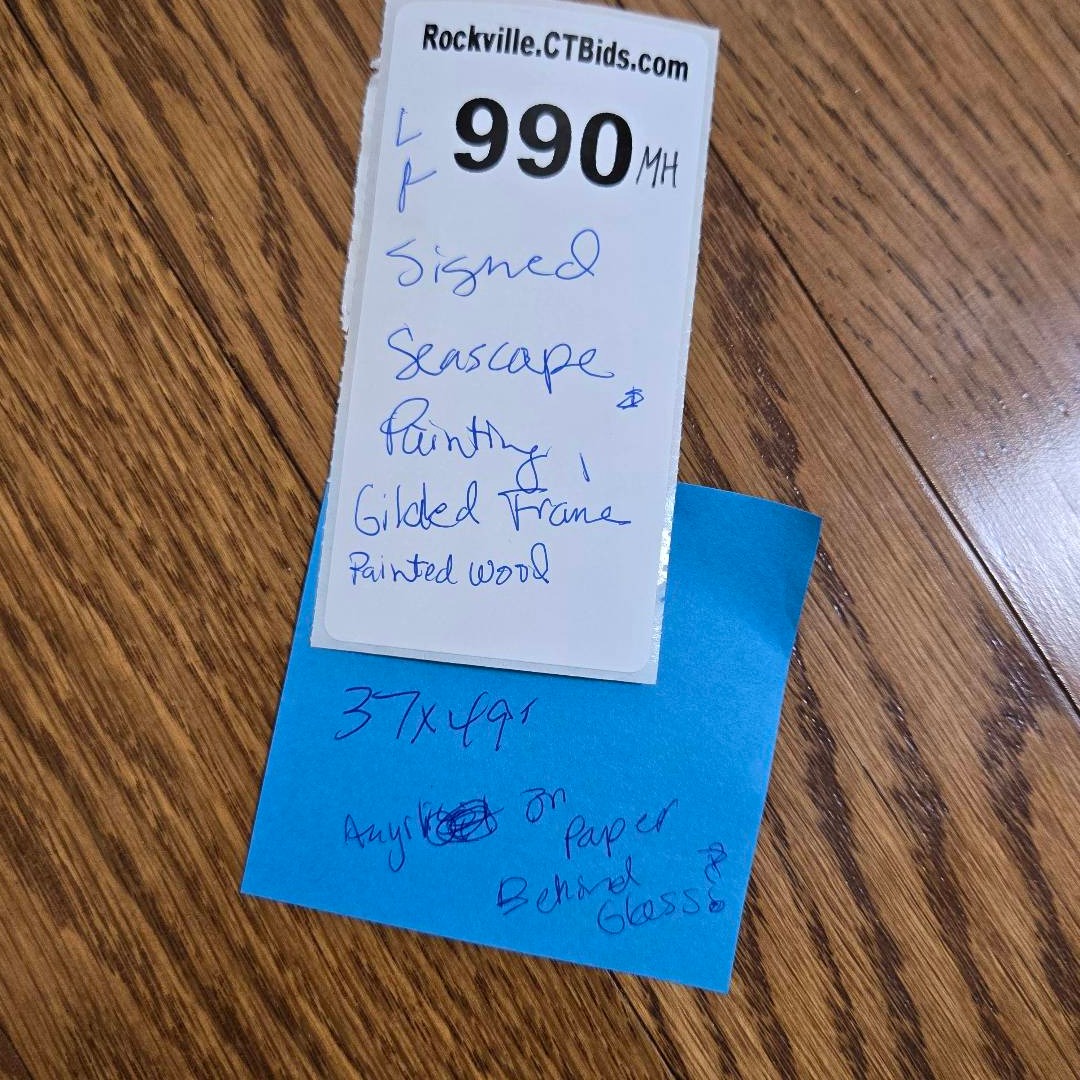 Rockville.CTBids.com
L
990 MH
Signed
Seascape
Painting,
Gilded Frame
Painted Wood
37x49
on
Paper
Behind
Glass